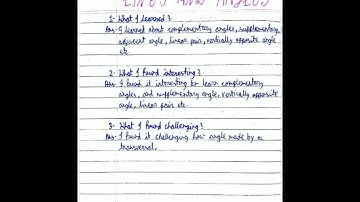 LINES AND ANGLES
1- What I learned?
Ans- I learned about complementary angles, supplementary,
adjacent angle, linear pair, vertically opposite angle
etc.
2. What I found interesting?
Ans- I found it interesting to learn complementary
angles, and supplementary angle, vertically opposite
angle, linear pair etc.
3- What I found challenging?
Ans- I found it challenging how angle made by a
transversal.